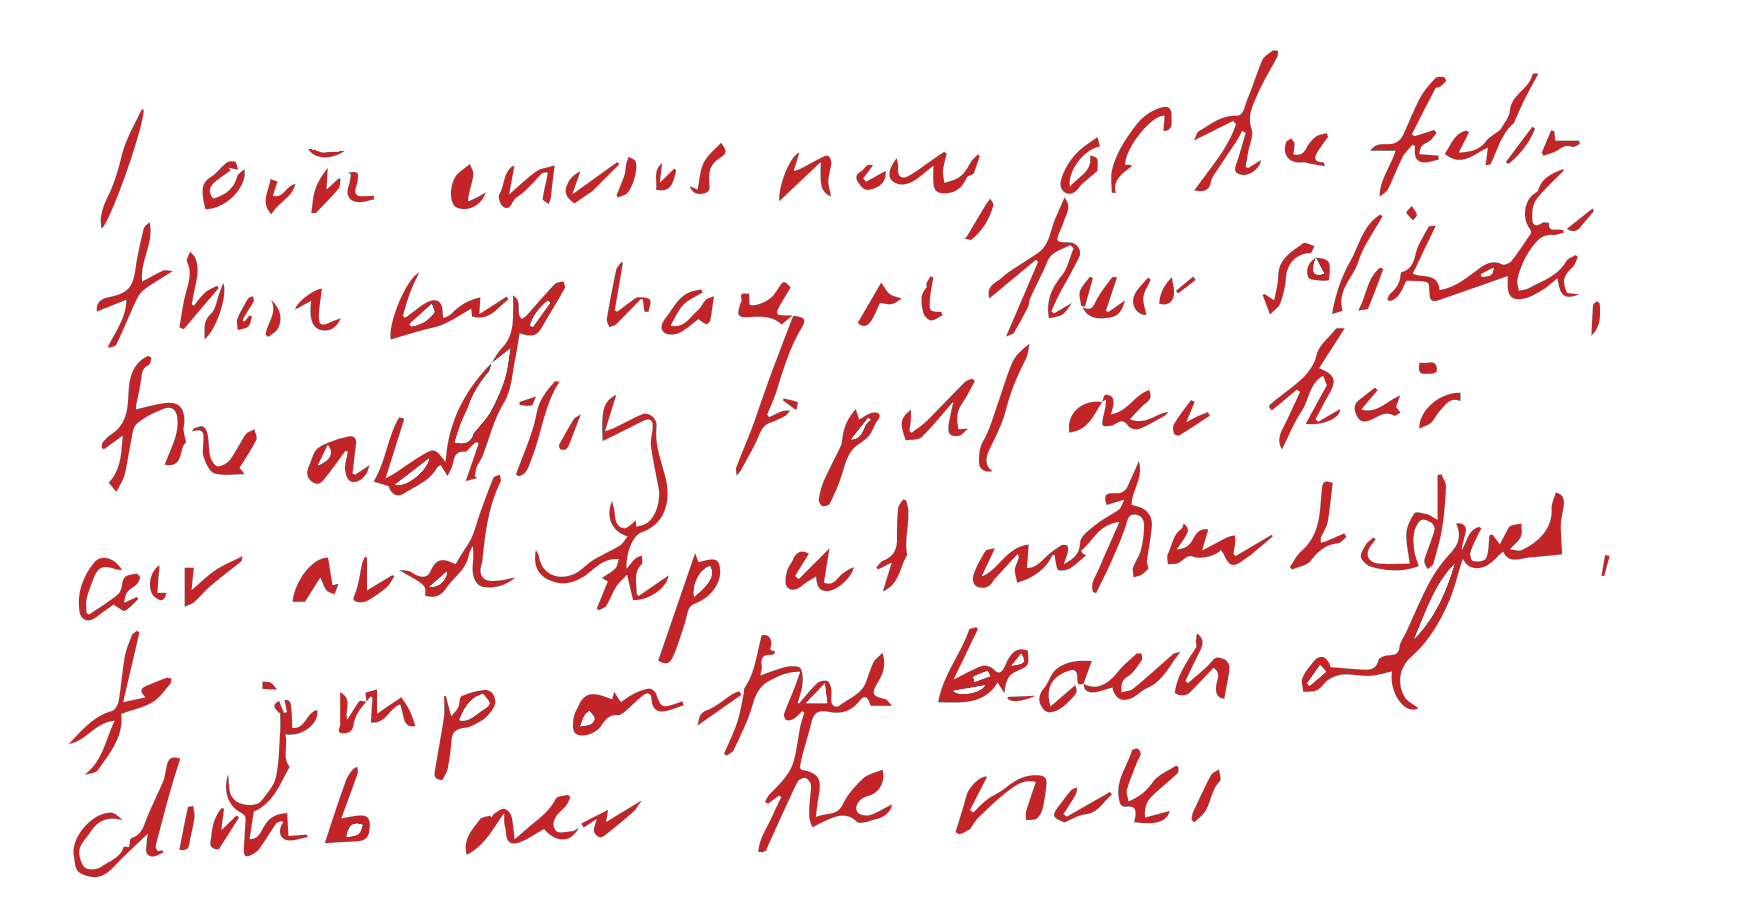 I am envious now, of the feeling
these boys have in their solitude,
the ability to pull over their
car and step out without shoes,
to jump on the beach and
climb over the rocks